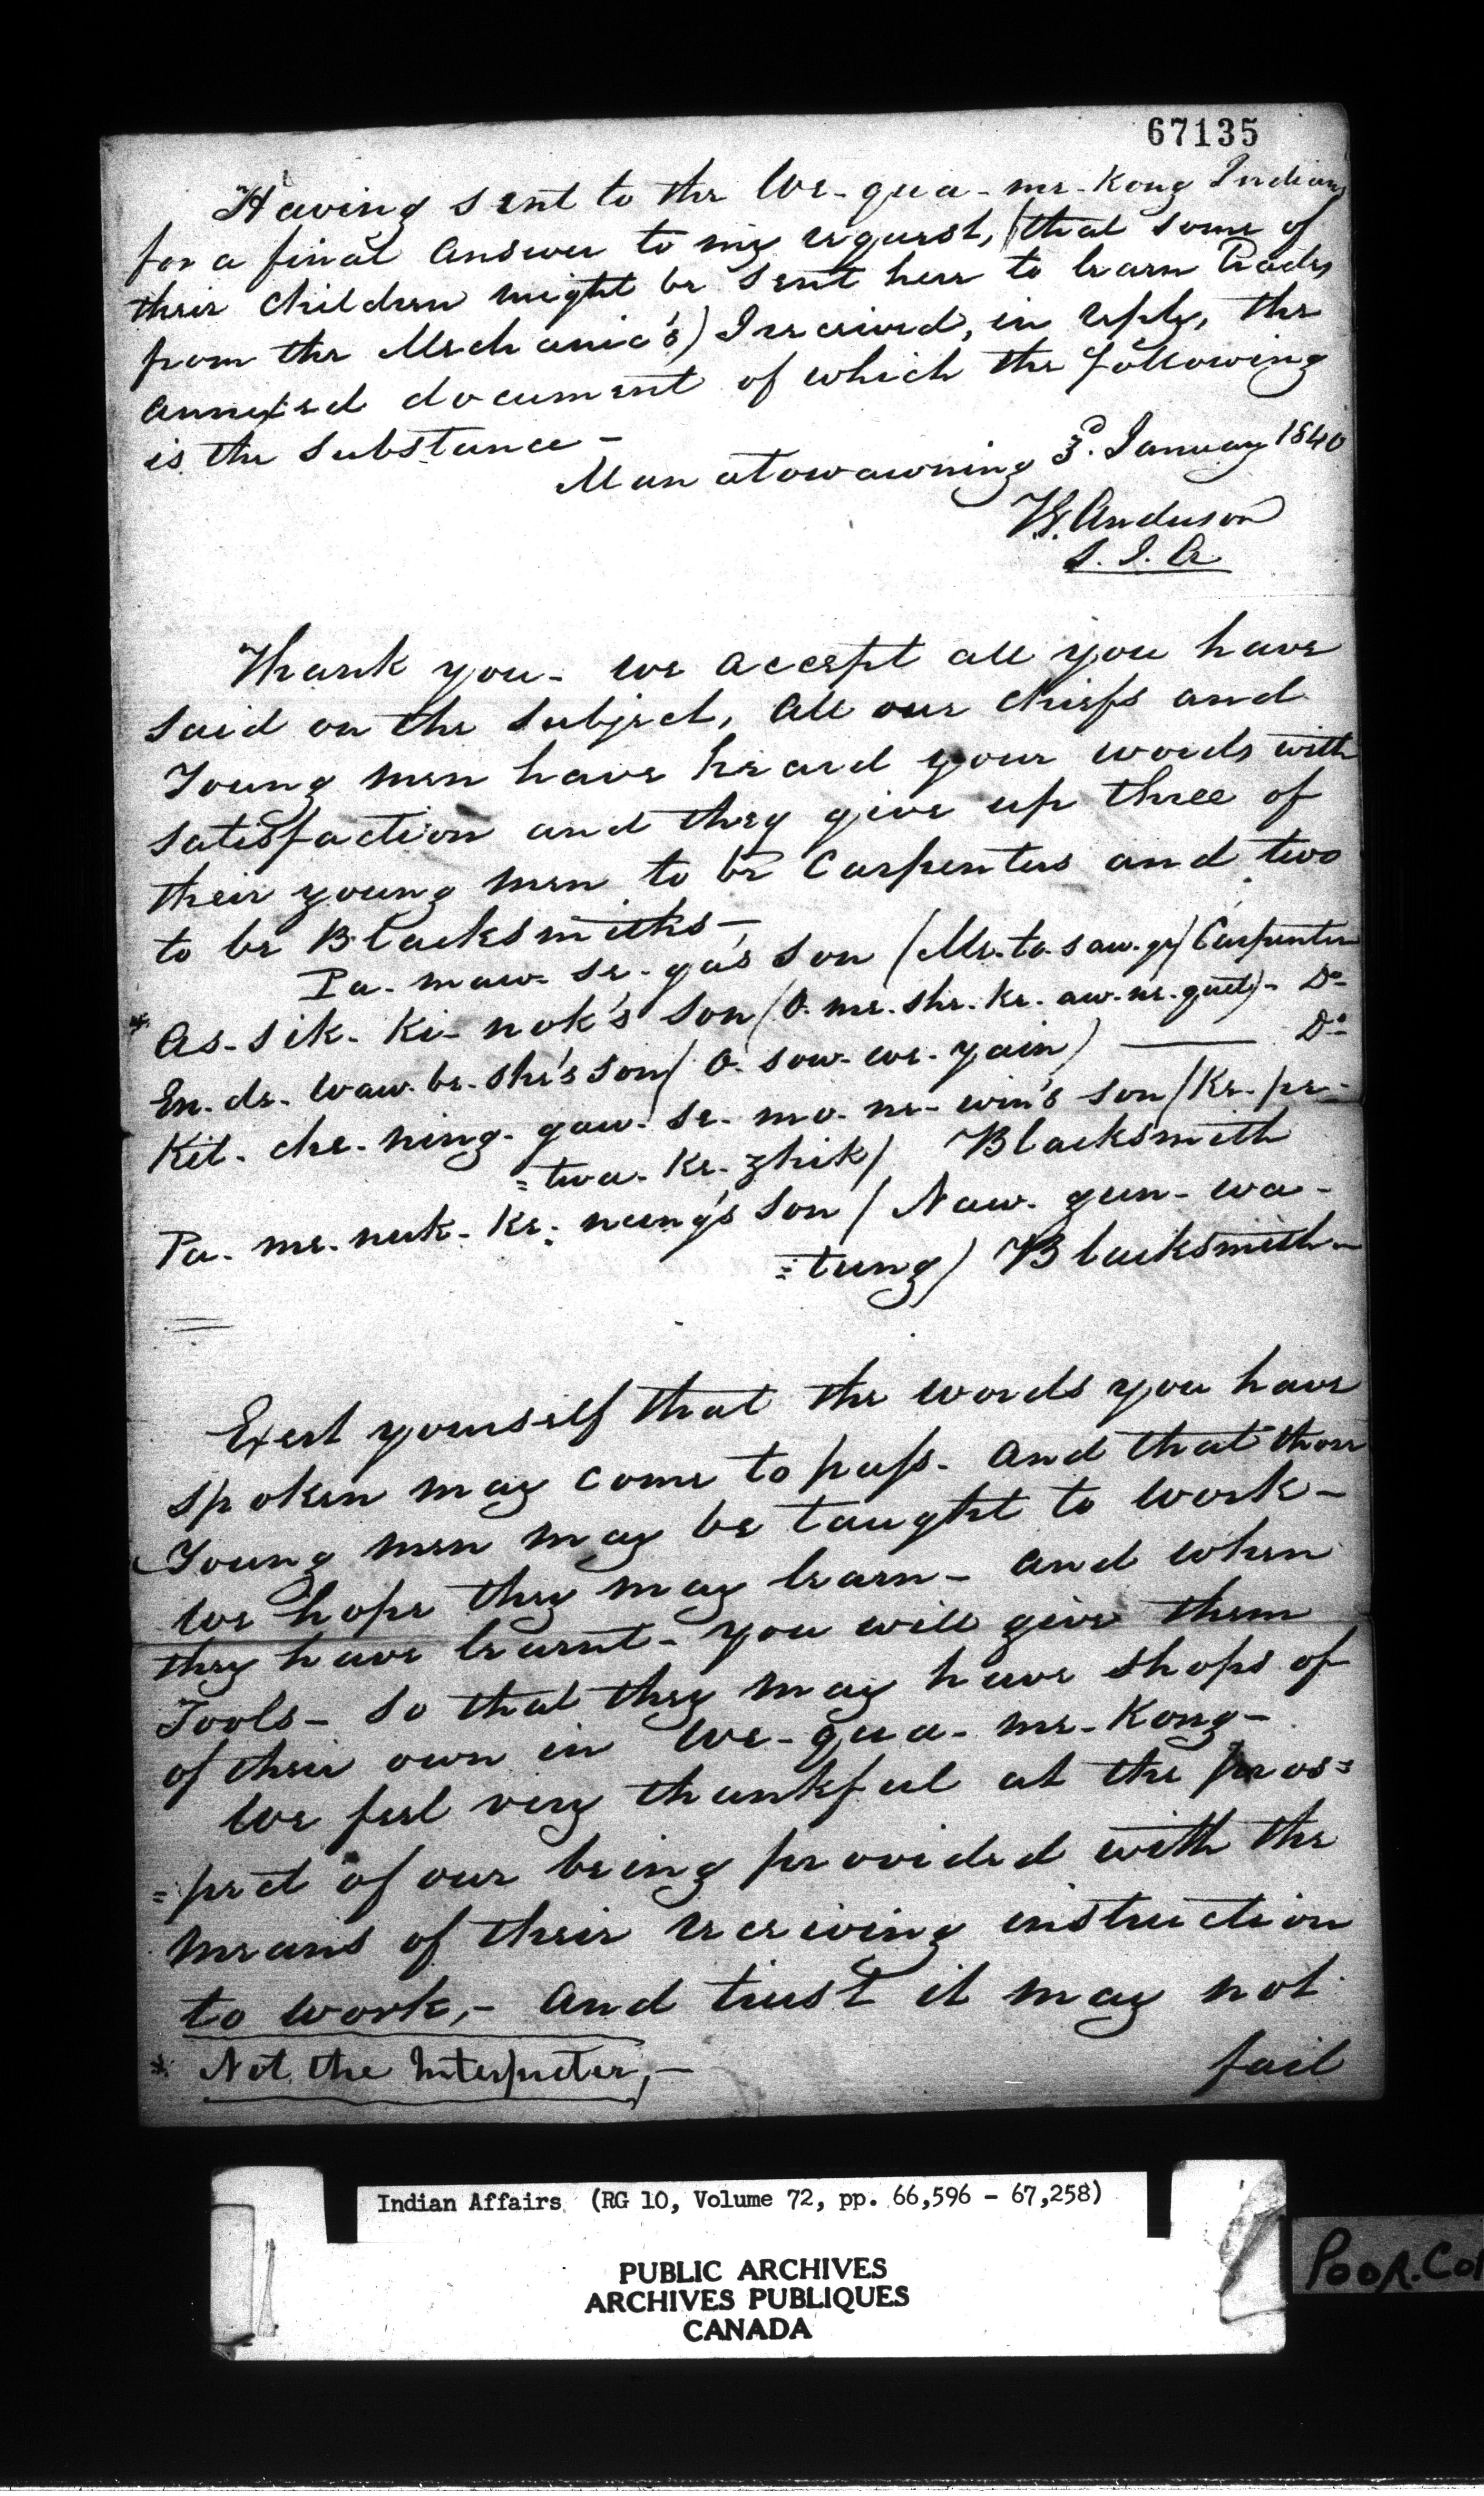 67135
Having sent to the We-qua-me-Kong Indians
for a final answer to my request, (that some of
their children might be sent here to learn Trades
from the Mechanic's) I received, in reply, the
annexed document of which the following
is the substance -
Manatowawning 3d. January 1840
T.G. Anderson
S. I. A
Thank you - we accept all you have
said on the subject, All our chiefs and
Young men have heard your words with
satisfaction and they give up three of
their young men to be Carpenters and two
to be Blacksmiths -
Pa-maw-se-ga's son (Me-ta-saw-ge) Carpenter
* As-sik-Ki-nok's Son (O-me-she-ke-aw-ne-quet) - Do-
En-de-waw-be-she's son (O-saw-we-yain) — Do-
Kit-che-ning-gaw-se-mo-ne-win's son (Ke-pe-
=twa-Ke-zhik) Blacksmith
Pa-me-nuk-Ke-neung's Son (Naw-gun-wa-
=tung) Blacksmith -
Exert yourself that the words you have
spoken may come to pass. And that those
Young men may be taught to work -
We hope they may learn - and when
they have learnt - you will give them
Tools - So that they may have shops of
of their own in We-qua-me-Kong -
We feel very thankful at the pros=
=pect of our being provided with the
means of their receiving instruction
to work, - And trust it may not
* Not the Interpreter, -
fail
Indian Affairs (RG 10, Volume 72, pp. 66,596 - 67,258)
PUBLIC ARCHIVES
ARCHIVES PUBLIQUES
CANADA
POOR.CO